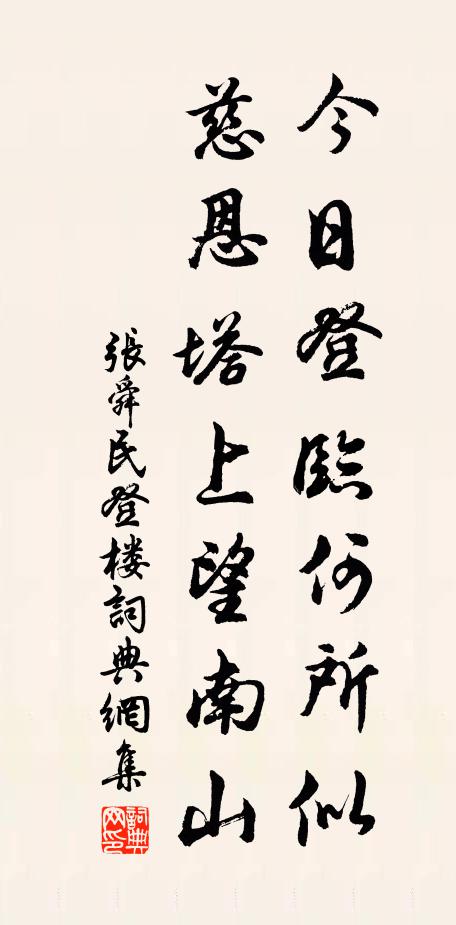 今日登臨何所似
慈恩塔上望南山
張舜民登楼詞典網集
詞典网印